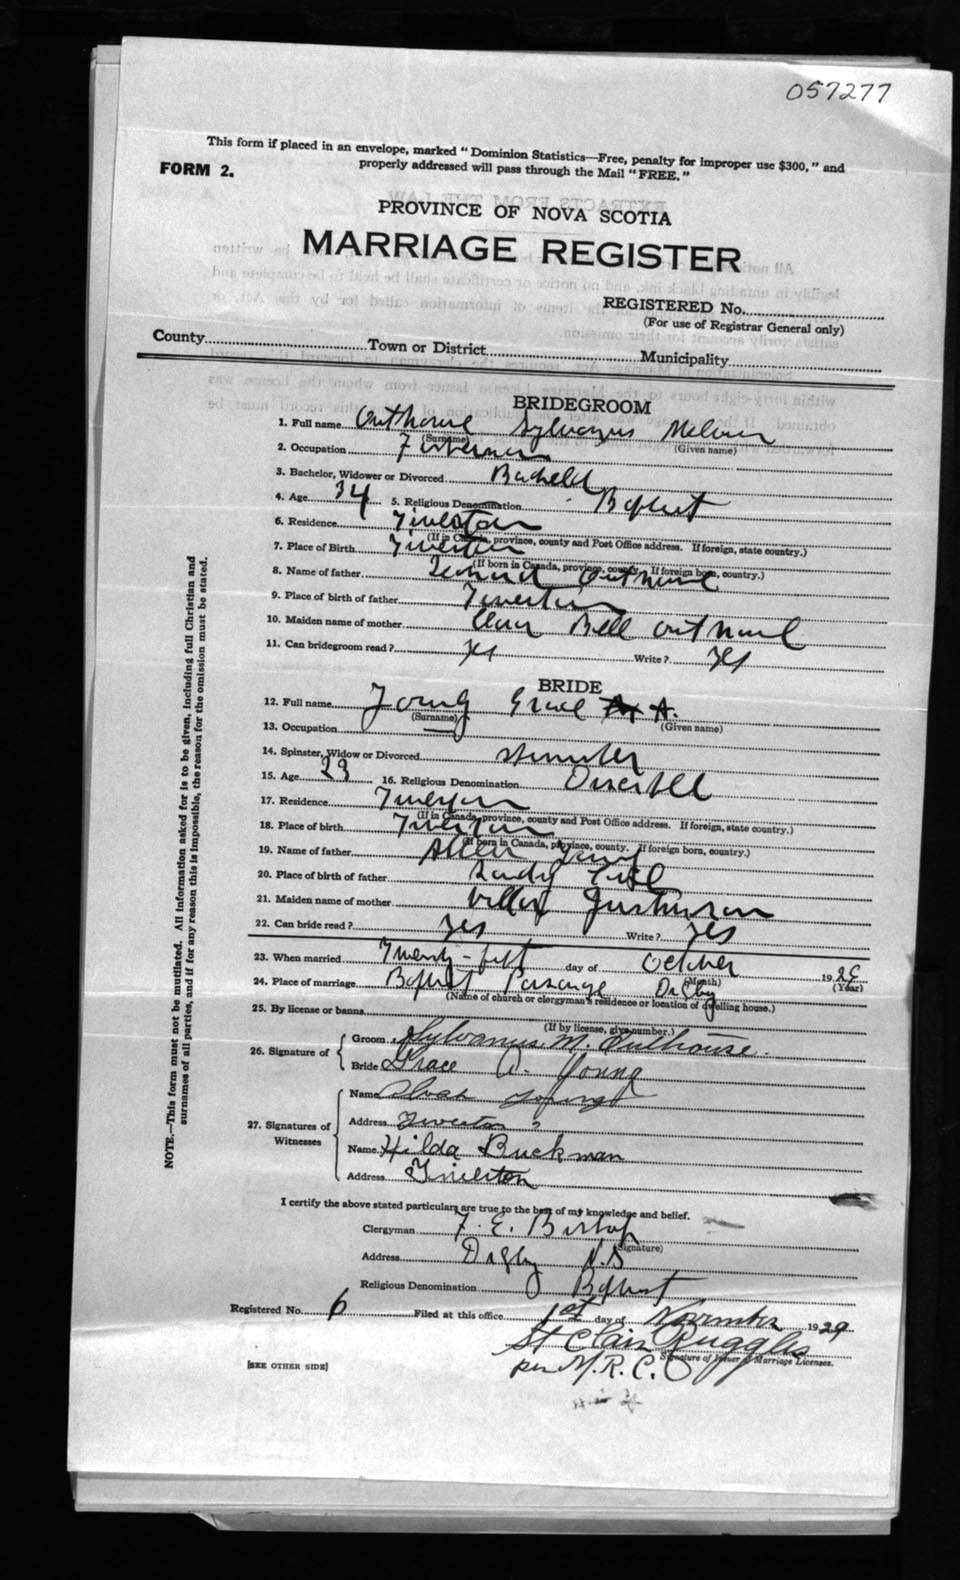 057277
This form if placed in an envelope, marked "Dominion Statistics—Free, penalty for improper use $300," and
FORM 2.
properly addressed will pass through the Mail "FREE."
PROVINCE OF NOVA SCOTIA
MARRIAGE REGISTER
REGISTERED No.
(For use of Registrar General only)
County Town or District Municipality
BRIDEGROOM
1. Full name Outhouse Sylvanus
(Surname) (Given name)
2. Occupation Fisherman
3. Bachelor, Widower or Divorced Bachelor
4. Age 34 5. Religious Denomination Baptist
6. Residence Tiverton
(If in Canada, province, county and Post Office address. If foreign, state country.)
7. Place of Birth Tiverton
(If born in Canada, province, county. If foreign born, country.)
8. Name of father Outhouse
9. Place of birth of father Tiverton
10. Maiden name of mother Bell Outhouse
11. Can bridegroom read? Yes Write? Yes
BRIDE
12. Full name Young Grace A.
(Surname) (Given name)
13. Occupation
14. Spinster, Widow or Divorced Spinster
15. Age 23 16. Religious Denomination
17. Residence Tiverton
(If in Canada, province, county and Post Office address. If foreign, state country.)
18. Place of birth Tiverton
(If born in Canada, province, county. If foreign born, country.)
19. Name of father Allen Young
20. Place of birth of father Sandy Cove
21. Maiden name of mother
22. Can bride read? Yes Write? Yes
23. When married Twenty-fift day of October 1929
(Month) (Year)
24. Place of marriage Baptist Parsonage Digby
(Name of church or clergyman's residence or location of dwelling house.)
25. By license or banns
(If by license, give number.)
26. Signature of
Groom Sylvanus M. Outhouse.
Bride Grace A. Young
27. Signatures of Witnesses
Name Young
Address Tiverton
Name Hilda Buckman
Address Tiverton
I certify the above stated particulars are true to the best of my knowledge and belief.
Clergyman F. E. Bishop
(Signature)
Address Digby N.S
Religious Denomination Baptist
Registered No. 6 Filed at this office 1st day of November 1929
St Clair Ruggles
Signature of Issuer of Marriage Licenses.
per M.R.C.
[SEE OTHER SIDE]
NOTE.—This form must not be mutilated. All information asked for is to be given, including full Christian and
surnames of all parties, and if for any reason this is impossible, the reason for the omission must be stated.